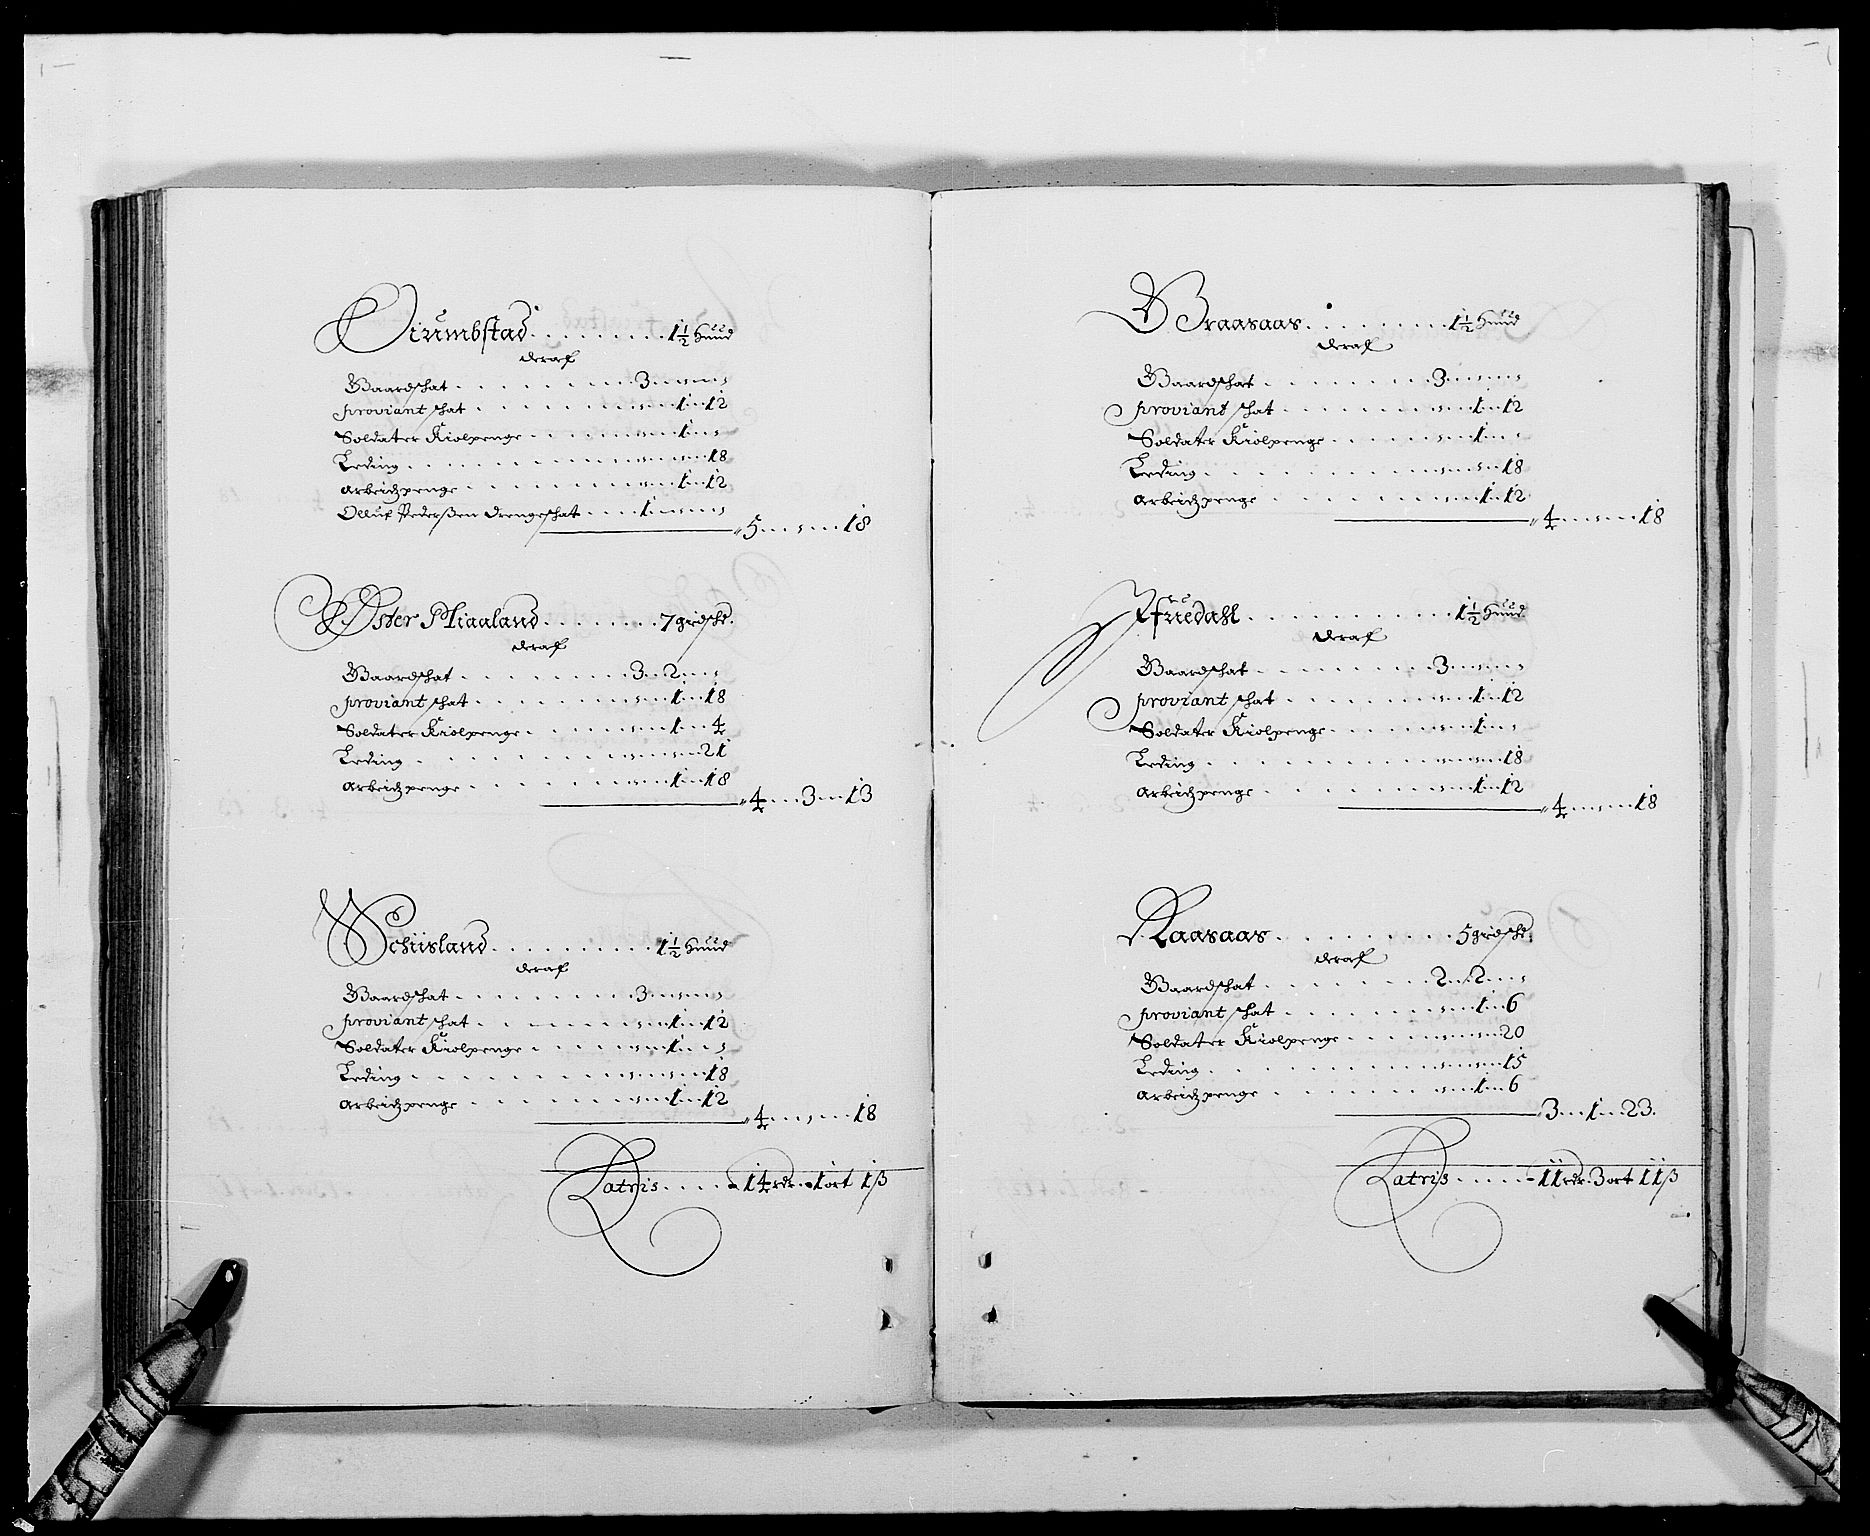 Oiumbstad . . . . . . . . 1½ Huud
deraf
Gaardschat . . . . . . . . 3 - " - "
proviant schat . . . . . . . " - 1 - 12
Soldater Kiolpenge . . . . . . " - 1 - "
Leding . . . . . . . . . . " - " - 18
Arbeidzpenge . . . . . . . . " - 1 - 12
Olluf Pederßen drengeschat . . . 1 - " - "
5 - " - 18
Øster Miaaland . . . . . . . 7 gridsch:
deraf
Gaardschat . . . . . . . . 3 - 2 - "
proviant schat . . . . . . . " - 1 - 18
Soldater Kiolpenge . . . . . . " - 1 - 4
Leding . . . . . . . . . . " - " - 21
Arbeidzpenge . . . . . . . . " - 1 - 18
4 - 3 - 13
Schiisland . . . . . . . . 1½ Huud
deraf
Gaardschat . . . . . . . . 3 - " - "
proviant schat . . . . . . . " - 1 - 12
Soldater Kiolpenge . . . . . . " - 1 - "
Leding . . . . . . . . . . " - " - 18
Arbeidzpenge . . . . . . . . " - 1 - 12
4 - " - 18
Latris . . . . . 14 rdr - 1 ort 1 ß
Braasaas . . . . . . . . 1½ Huud
deraf
Gaardschat . . . . . . . . 3 - " - "
proviant schat . . . . . . . " - 1 - 12
Soldater Kiolpenge . . . . . . " - 1 - "
Leding . . . . . . . . . . " - " - 18
Arbeidzpenge . . . . . . . . " - 1 - 12
4 - " - 18
Ffuedahl . . . . . . . . 1½ Huud
deraf
Gaardschat . . . . . . . . 3 - " - "
proviant schat . . . . . . . " - 1 - 12
Soldater Kiolpenge . . . . . . " - 1 - "
Leding . . . . . . . . . . " - " - 18
Arbeidzpenge . . . . . . . . " - 1 - 12
4 - " - 18
Raasaas . . . . . . . . 5 gridsch:
deraf
Gaardschat . . . . . . . . 2 - 2 - "
proviant schat . . . . . . . " - 1 - 6
Soldater Kiolpenge . . . . . . " - " - 20
Leding . . . . . . . . . . " - " - 15
Arbeidzpenge . . . . . . . . " - 1 - 6
3 - 1 - 23.
Latris . . . . . 11 rdr - 3 ort 11 ß